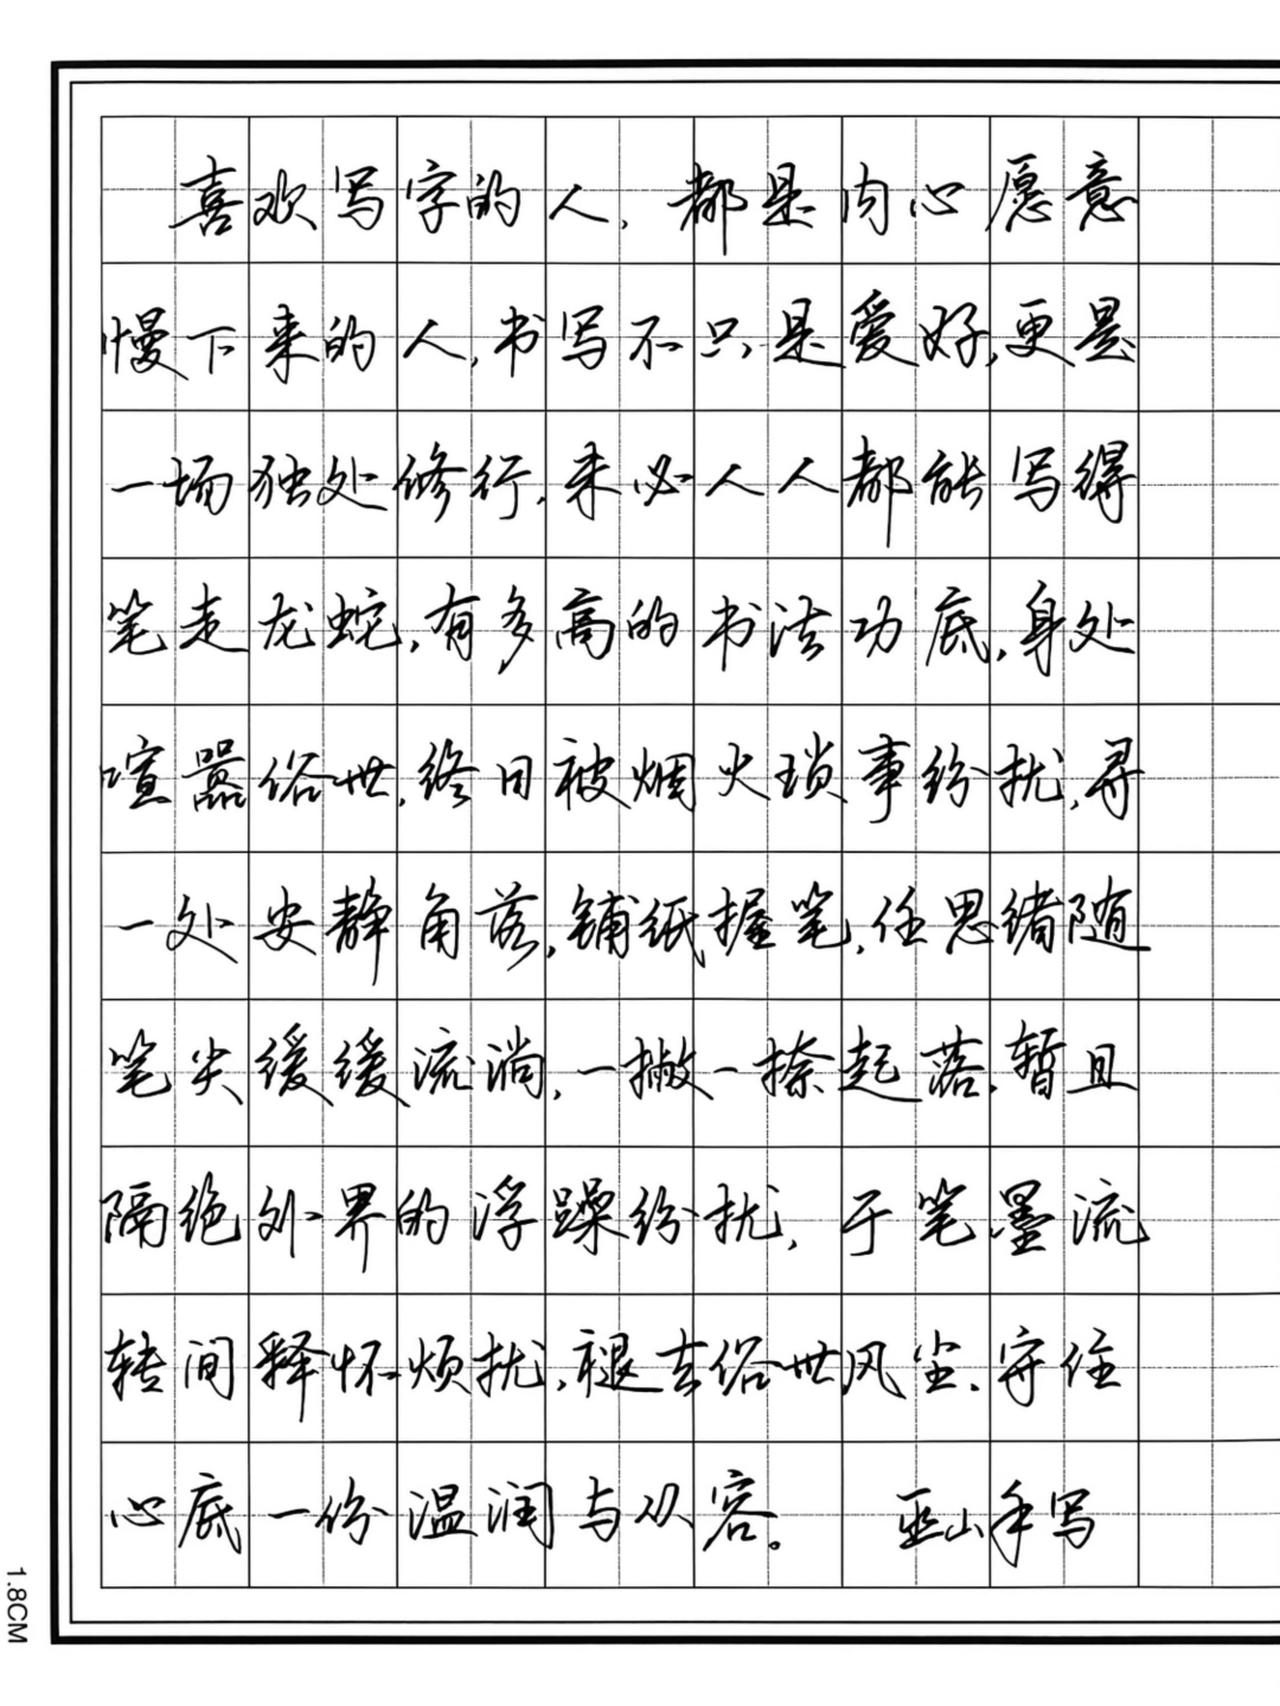 喜欢写字的人,都是内心愿意
慢下来的人,书写不只是爱好,更是
一场独处修行,未必人人都能写得
笔走龙蛇,有多高的书法功底,身处
喧嚣俗世,终日被烟火琐事纷扰,寻
一处安静角落,铺纸握笔,任思绪随
笔尖缓缓流淌,一撇一捺起落,暂且
隔绝外界的浮躁纷扰,于笔墨流
转间释怀烦扰,褪去俗世风尘,守住
心底一份温润与从容。 巫山手写
1.8CM